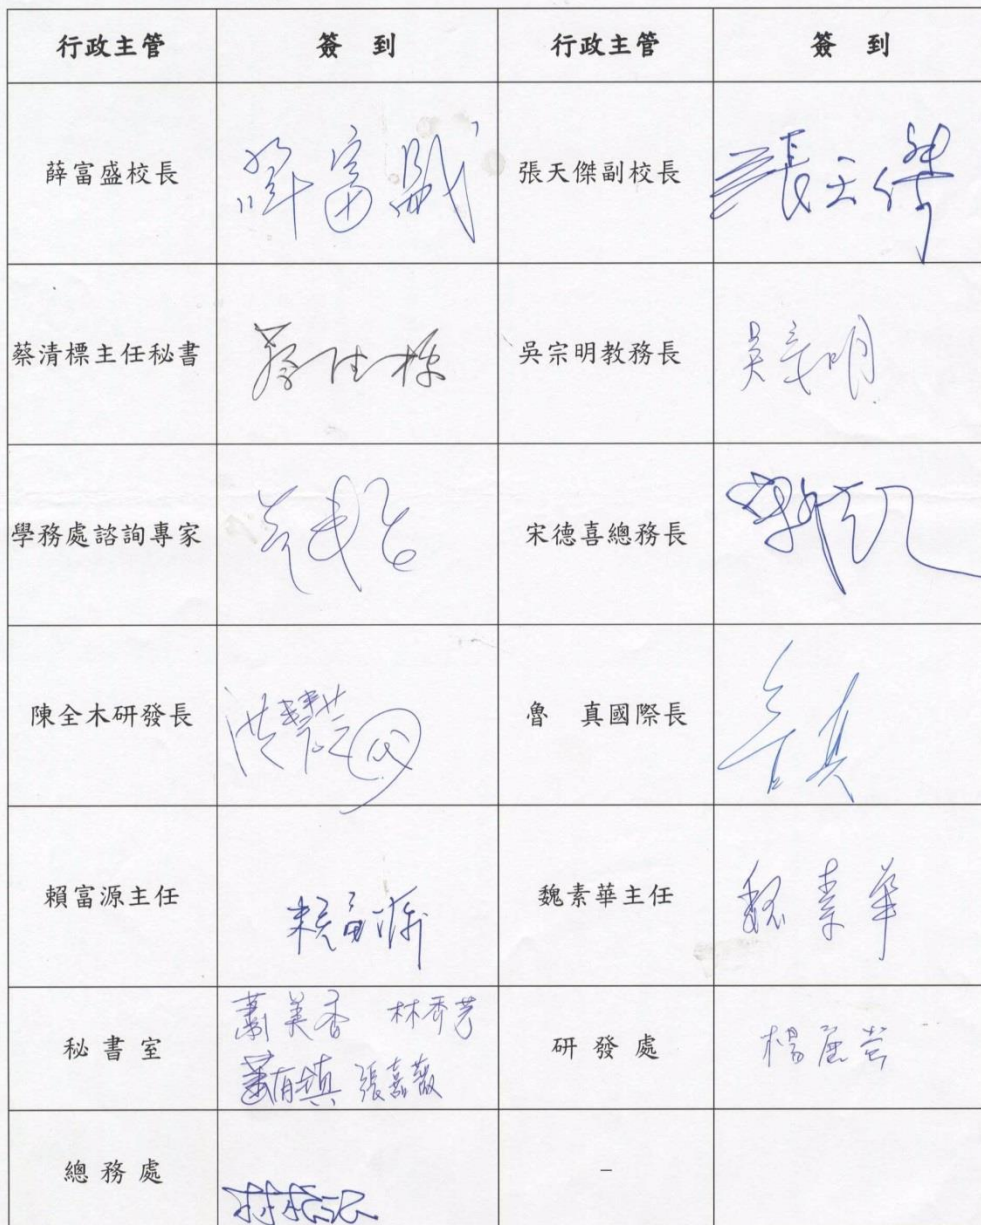 行政主管 簽到 行政主管 簽到
薛富盛校長 薛富盛 張天傑副校長 張天傑
蔡清標主任秘書 吳宗明教務長 吳宗明
學務處諮詢專家 宋德喜總務長
陳全木研發長 洪慧芝 魯 真國際長 魯真
賴富源主任 賴富源 魏素華主任 魏素華
秘書室 蕭美香 林秀芳 研發處
蕭有鎮 張嘉薇
總務處 –